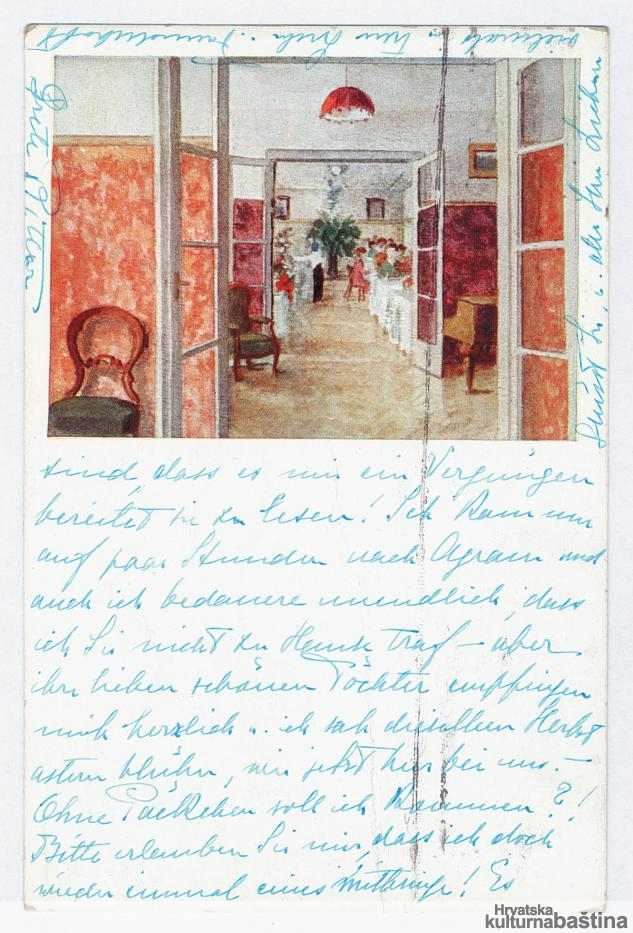 sind, dass es mir ein Vergnügen
bereitet sie zu lesen! Ich kam nur
auf paar Stunden nach Agram und
auch ich bedauere unendlich, dass
ich Sie nicht zu Hause traf – aber
ihre lieben schönen Töchter empfingen
mich herzlich u. ich sah dieselben Herbst
astern blühn, wie jetzt hier bei uns. –
Ohne Päckchen soll ich kommen?!
Bitte erlauben Sie mir, dass ich doch
wieder einmal eines mitbringe! Es
grüsst Sie, u. alle
vielmals Ihre
Grete
Hrvatska
kulturnabaština